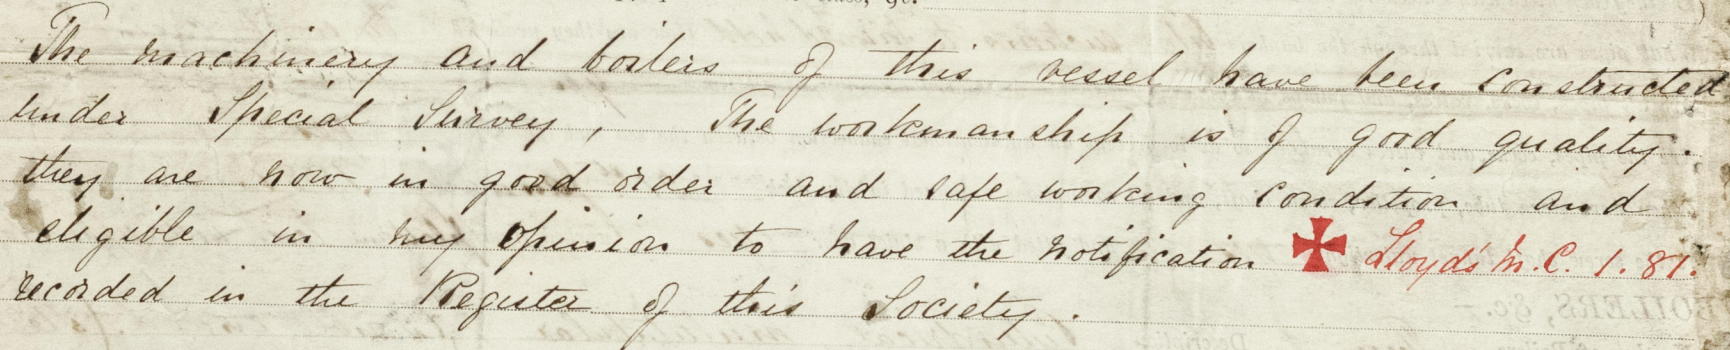 The machinery and boilers of this vessel have been constructed
under Special Survey, The workmanship is of good quality.
they are now in good order and safe working condition and
eligible in my opinion to have the notification ✠ Lloyd's M.C. 1.81.
recorded in the Register of this Society.